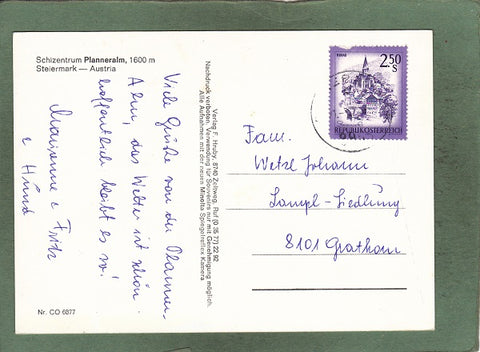 Schizentrum Planneralm, 1600 m
Steiermark — Austria
Viele Grüße von der Planner-
Alm, das Wetter ist schön
hoffentlich bleibt es so!
Marianne & Fritz
& Hund
Nr. CO 6877
Verlag F. Hruby, 8740 Zeltweg, Ruf (0 35 77) 22 92
Nachdruck verboten, Verwendung für Souvenirs nur mit Genehmigung möglich.
Alle Aufnahmen mit der neuen Minolta Spiegelreflex Kamera
2.50
S
REPUBLIK ÖSTERREICH
Fam.
Wetzl Johann
Lampl-Siedlung
8101 Gratkorn